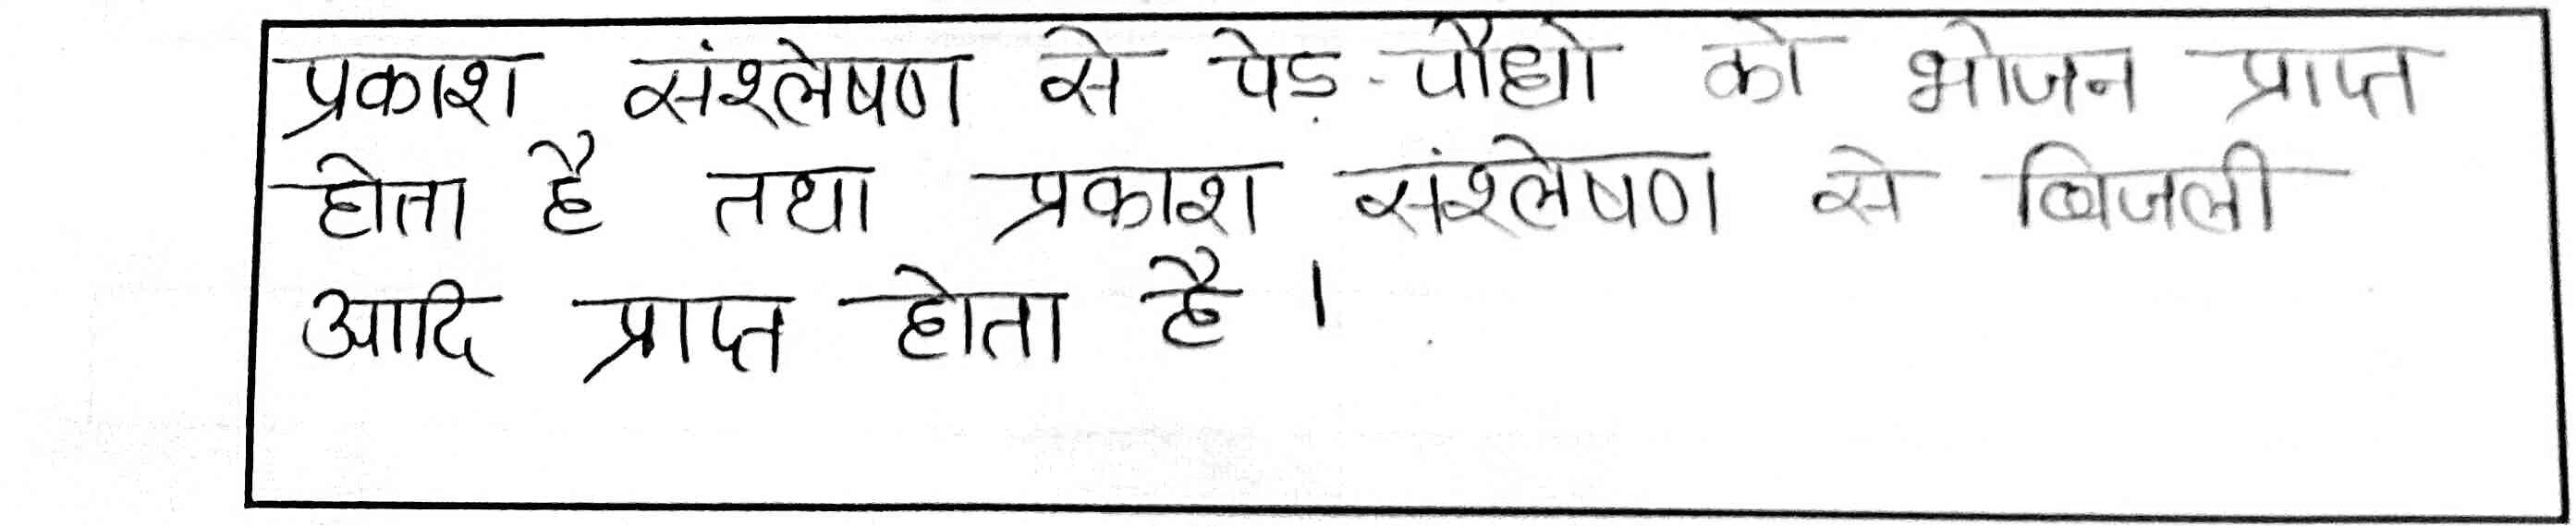 प्रकाश संश्लेषण से पेड़-पौधो को भोजन प्राप्त
होता है तथा प्रकाश संश्लेषण से बिजली
आदि प्राप्त होता है ।